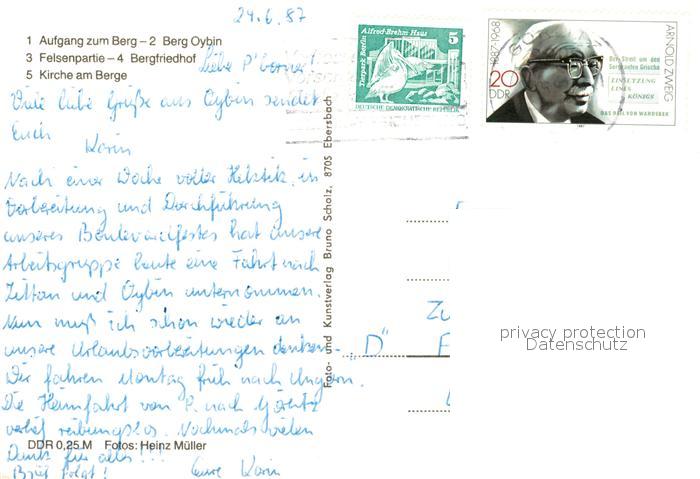 24.6.87
1 Aufgang zum Berg – 2 Berg Oybin
3 Felsenpartie – 4 Bergfriedhof
5 Kirche am Berge
Liebe
Viele liebe Grüße aus Oybin sendet
Euch
Karin
Nach einer Woche voller Hektik, in
Vorbereitung und Durchführung
unseres Boulevardfestes hat unsere
Arbeitsgruppe heute eine Fahrt nach
Zittau und Oybin unternommen.
Nun muß ich schon wieder an
unsere Urlaubsvorbereitungen denken.
Wir fahren Montag früh nach Ungarn.
Die Heimfahrt von P. nach Görlitz
verlief reibungslos. Nochmals vielen
Dank für alles!!!
Brief folgt!
Eure Karin
DDR 0,25 M Fotos: Heinz Müller
Foto- und Kunstverlag Bruno Scholz, 8705 Ebersbach
Alfred-Brehm-Haus
Tierpark Berlin
5
DEUTSCHE DEMOKRATISCHE REPUBLIK
1887-1968
ARNOLD ZWEIG
20
DDR
Der Streit um den
Sergeanten Grischa
EINSETZUNG
EINES
KÖNIGS
DAS BEIL VON WANDSBEK
1987
Zu
"D"
F
privacy protection
Datenschutz